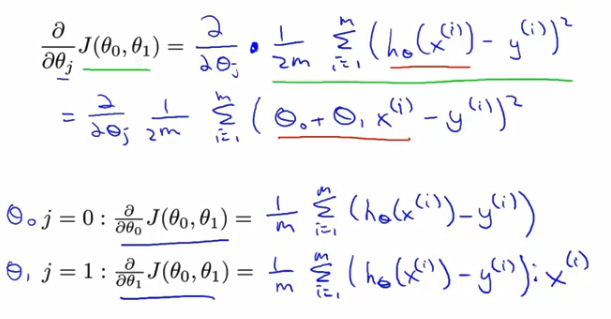 ∂/∂θⱼ J(θ₀, θ₁) = ∂/∂θⱼ · 1/2m ∑ᵢ₌₁ᵐ (h_θ(x⁽ⁱ⁾) - y⁽ⁱ⁾)²
= ∂/∂θⱼ 1/2m ∑ᵢ₌₁ᵐ (θ₀ + θ₁ x⁽ⁱ⁾ - y⁽ⁱ⁾)²
θ₀ j = 0 : ∂/∂θ₀ J(θ₀, θ₁) = 1/m ∑ᵢ₌₁ᵐ (h_θ(x⁽ⁱ⁾) - y⁽ⁱ⁾)
θ₁ j = 1 : ∂/∂θ₁ J(θ₀, θ₁) = 1/m ∑ᵢ₌₁ᵐ (h_θ(x⁽ⁱ⁾) - y⁽ⁱ⁾) · x⁽ⁱ⁾